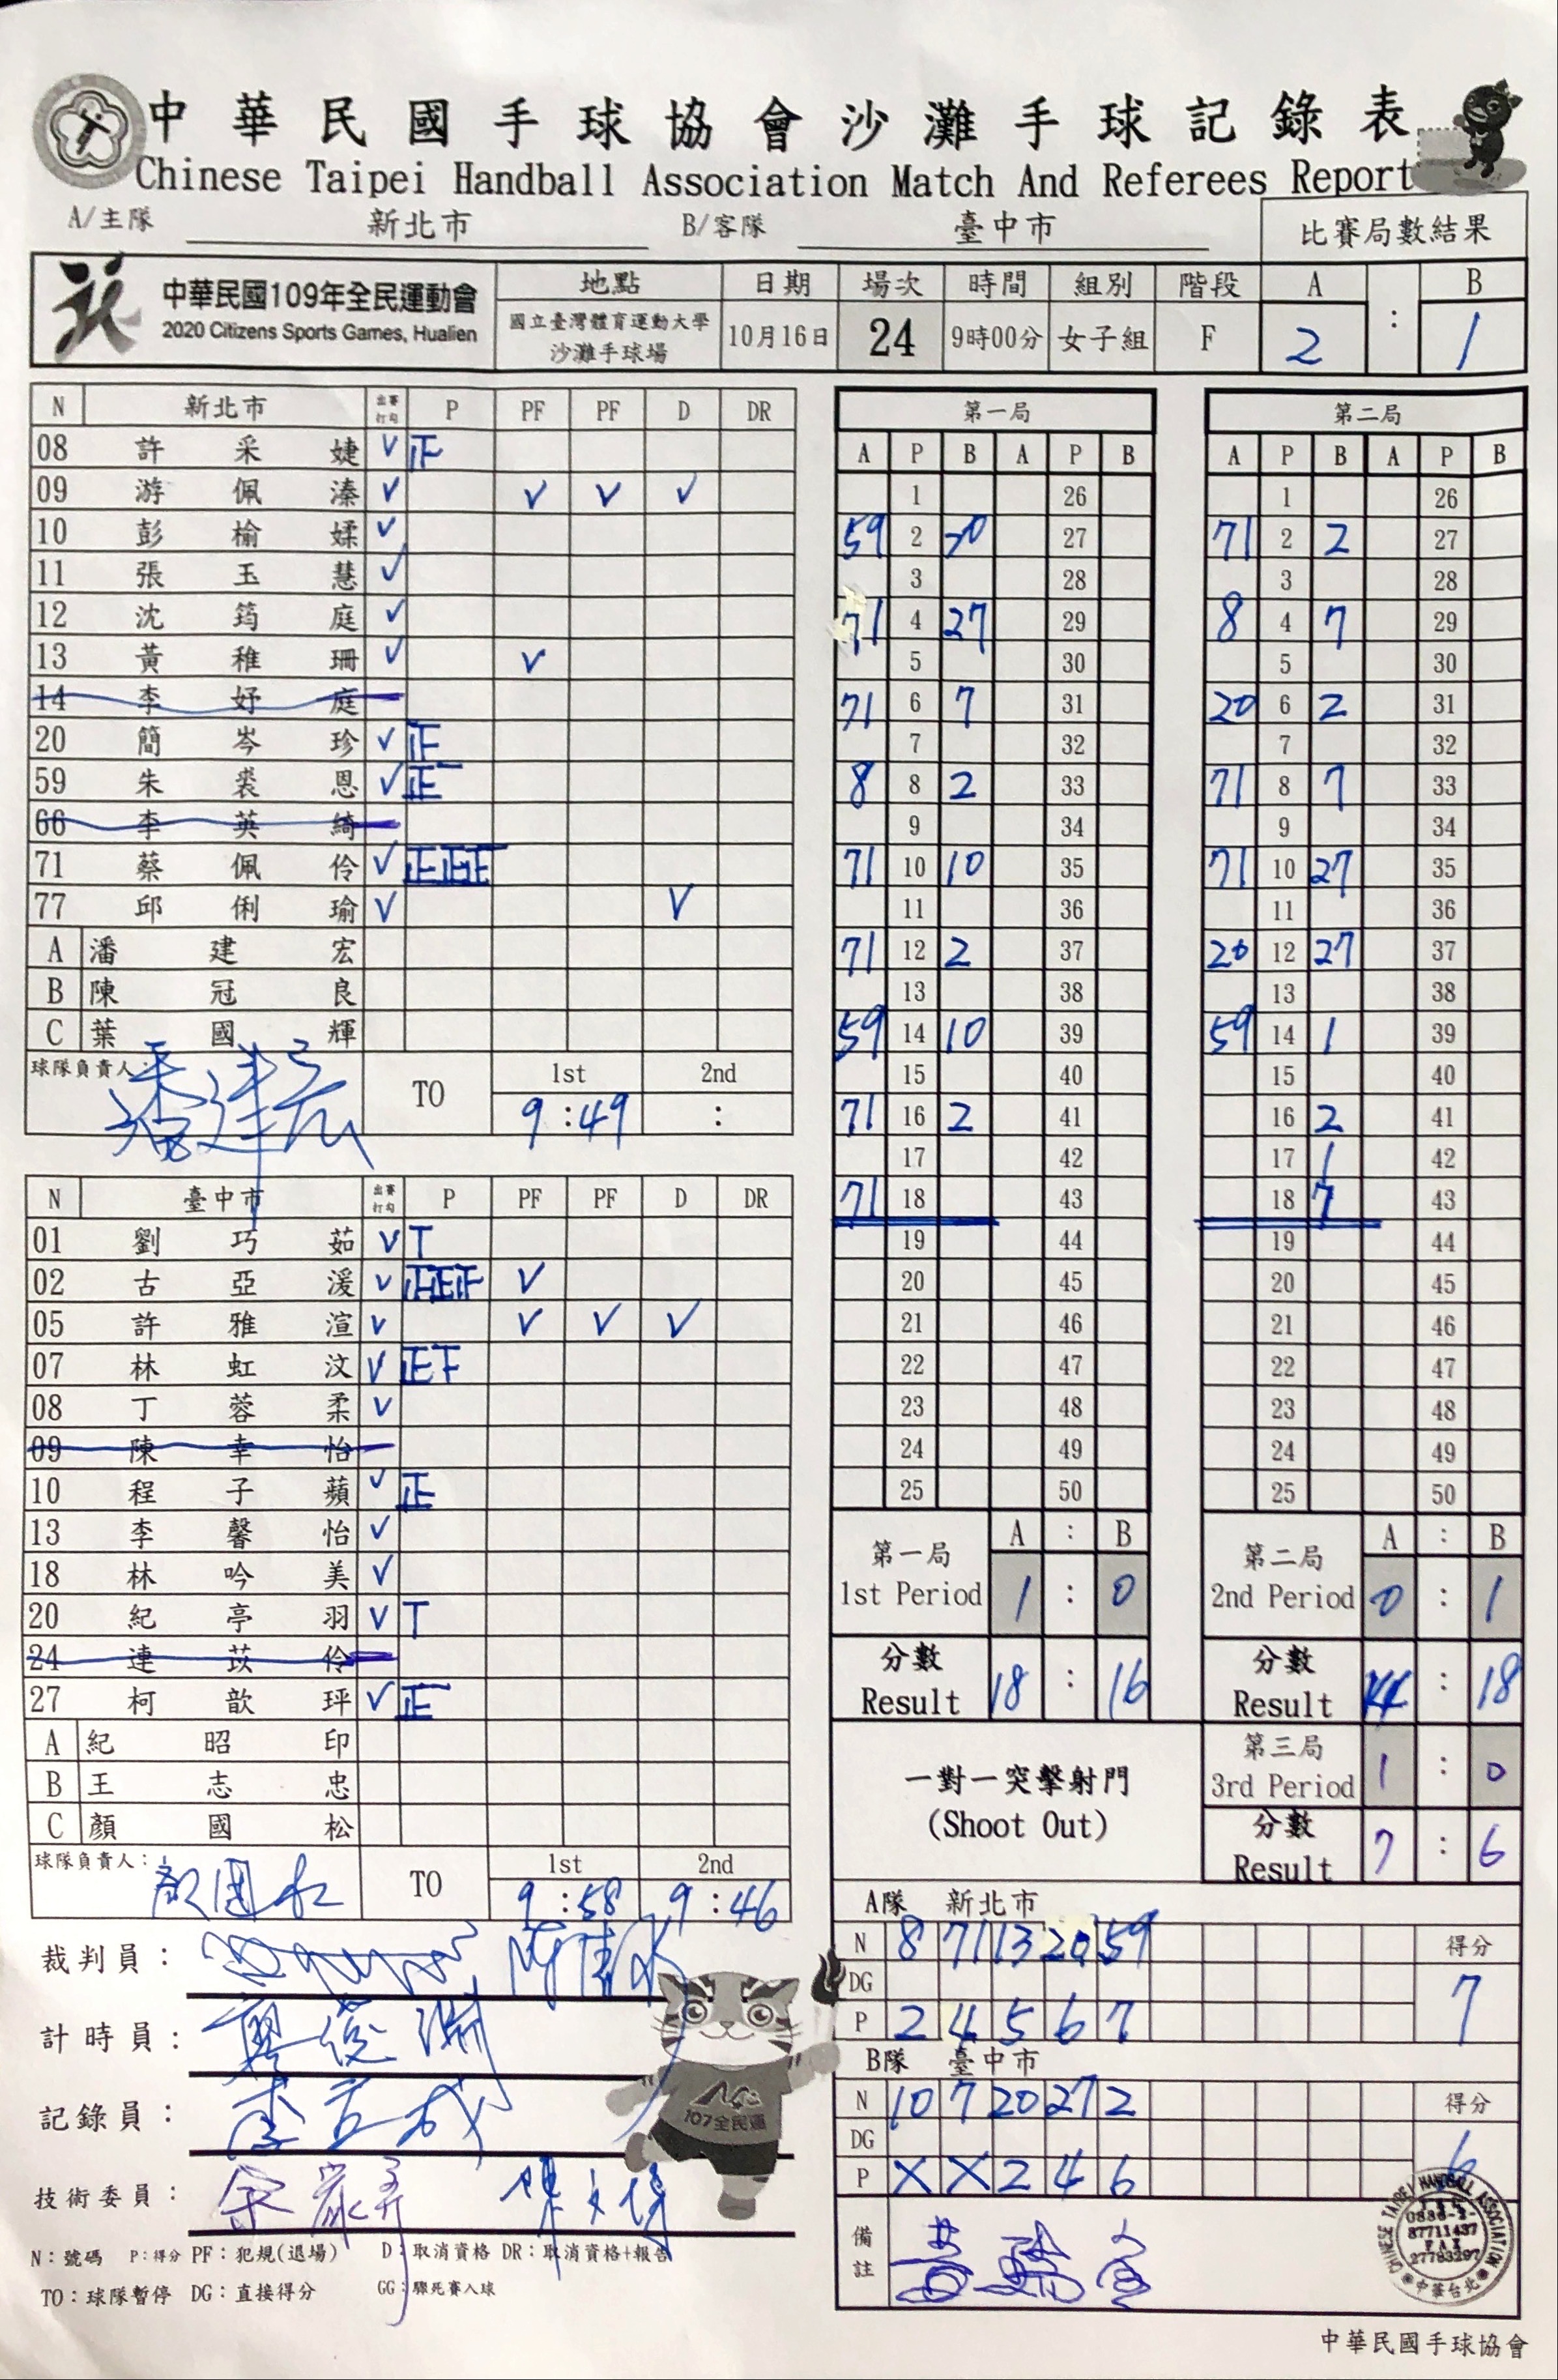 中華民國手球協會沙灘手球記錄表
Chinese Taipei Handball Association Match And Referees Report
A/主隊 新北市 B/客隊 臺中市 比賽局數結果
中華民國109年全民運動會 地點 日期 場次 時間 組別 階段 A : B
2020 Citizens Sports Games, Hualien 國立臺灣體育運動大學 沙灘手球場 10月16日 24 9時00分 女子組 F 2 1
N 新北市 出賽打勾 P PF PF D DR
08 許采婕 ✓ 正
09 游佩溱 ✓ ✓ ✓ ✓
10 彭榆媃 ✓
11 張玉慧 ✓
12 沈筠庭 ✓
13 黃稚珊 ✓ ✓
14 李妤庭
20 簡岑珍 ✓
59 朱裘恩 ✓
66 李英綺
71 蔡佩伶 ✓
77 邱俐瑜 ✓ ✓
A 潘建宏
B 陳冠良
C 葉國輝
球隊負責人: 潘建宏 TO 1st 2nd
9:49 :
N 臺中市 出賽打勾 P PF PF D DR
01 劉巧茹 ✓ T
02 古亞湲 ✓ ✓
05 許雅渲 ✓ ✓ ✓ ✓
07 林虹汶 ✓
08 丁蓉柔 ✓
09 陳幸怡
10 程子蘋 ✓ 正
13 李馨怡 ✓
18 林吟美 ✓
20 紀亭羽 ✓ T
24 連苡伶
27 柯歆玶 ✓ 正
A 紀昭印
B 王志忠
C 顏國松
球隊負責人: TO 1st 2nd
9:58 9:46
裁判員:
計時員:
記錄員:
技術委員:
N:號碼 P:得分 PF:犯規(退場) D:取消資格 DR:取消資格+報告
TO:球隊暫停 DG:直接得分 GG:驟死賽入球
107全民運
第一局
A P B A P B
1 26
59 2 20 27
3 28
71 4 27 29
5 30
71 6 7 31
7 32
8 8 2 33
9 34
71 10 10 35
11 36
71 12 2 37
13 38
59 14 10 39
15 40
71 16 2 41
17 42
71 18 43
19 44
20 45
21 46
22 47
23 48
24 49
25 50
第一局 1st Period A : B
1 : 0
分數 Result 18 : 16
第二局
A P B A P B
1 26
71 2 2 27
3 28
8 4 7 29
5 30
20 6 2 31
7 32
71 8 7 33
9 34
71 10 27 35
11 36
20 12 27 37
13 38
59 14 1 39
15 40
16 2 41
17 1 42
18 7 43
19 44
20 45
21 46
22 47
23 48
24 49
25 50
第二局 2nd Period A : B
0 : 1
分數 Result 14 : 18
一對一突擊射門
(Shoot Out)
第三局 3rd Period 1 : 0
分數 Result 7 : 6
A隊 新北市
N 8 71 13 20 59 得分
DG
P 2 4 5 6 7 7
B隊 臺中市
N 10 7 20 27 2 得分
DG
P X X 2 4 6 6
備註
CHINESE TAIPEI HANDBALL ASSOCIATION
TEL
0886-2-
87711437
FAX
27783297
中華台北
中華民國手球協會